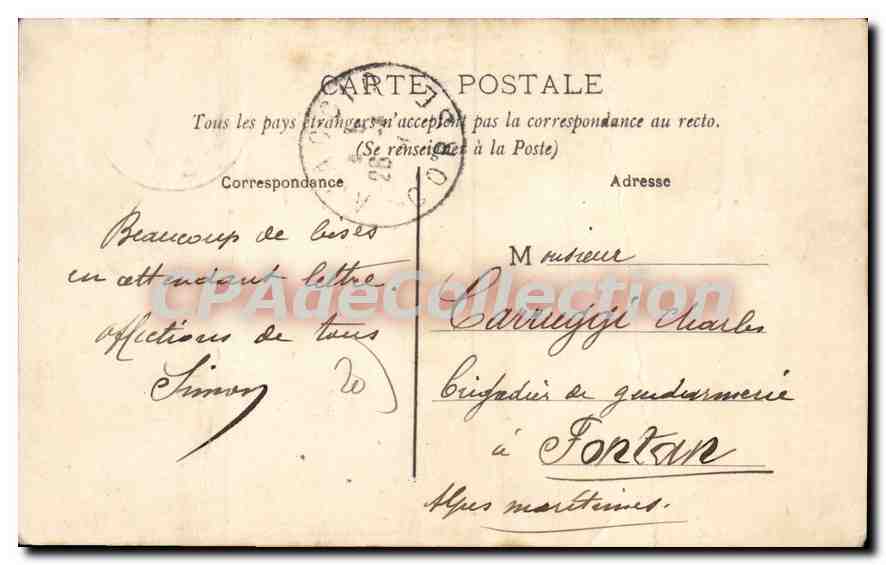 CARTE POSTALE
Tous les pays étrangers n'acceptent pas la correspondance au recto.
(Se renseigner à la Poste)
Correspondance
Adresse
Beaucoup de bises
en attendant lettre.
affections de tous
Simon
20
Monsieur
Carreggi Charles
Brigadier de gendarmerie
à Fontan
Alpes maritimes.
CPAdeCollection
AJACCIO
CORSE
26